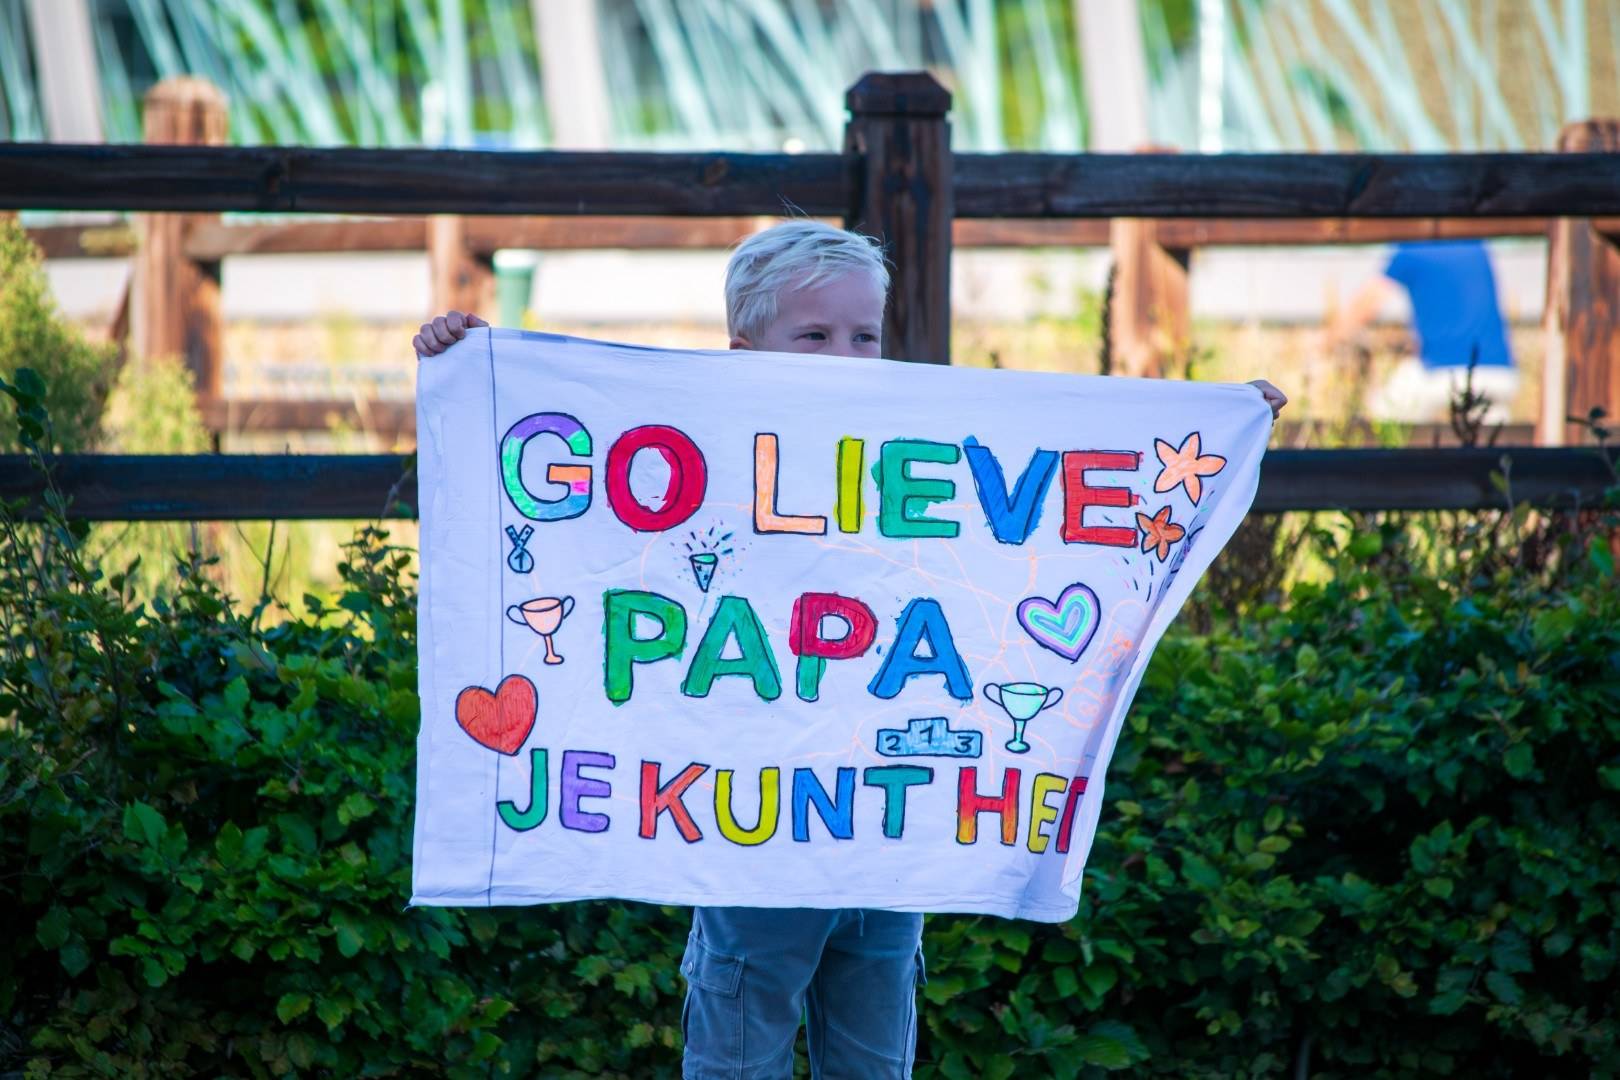 GO LIEVE
1
PAPA
2 1 3
JE KUNT HET